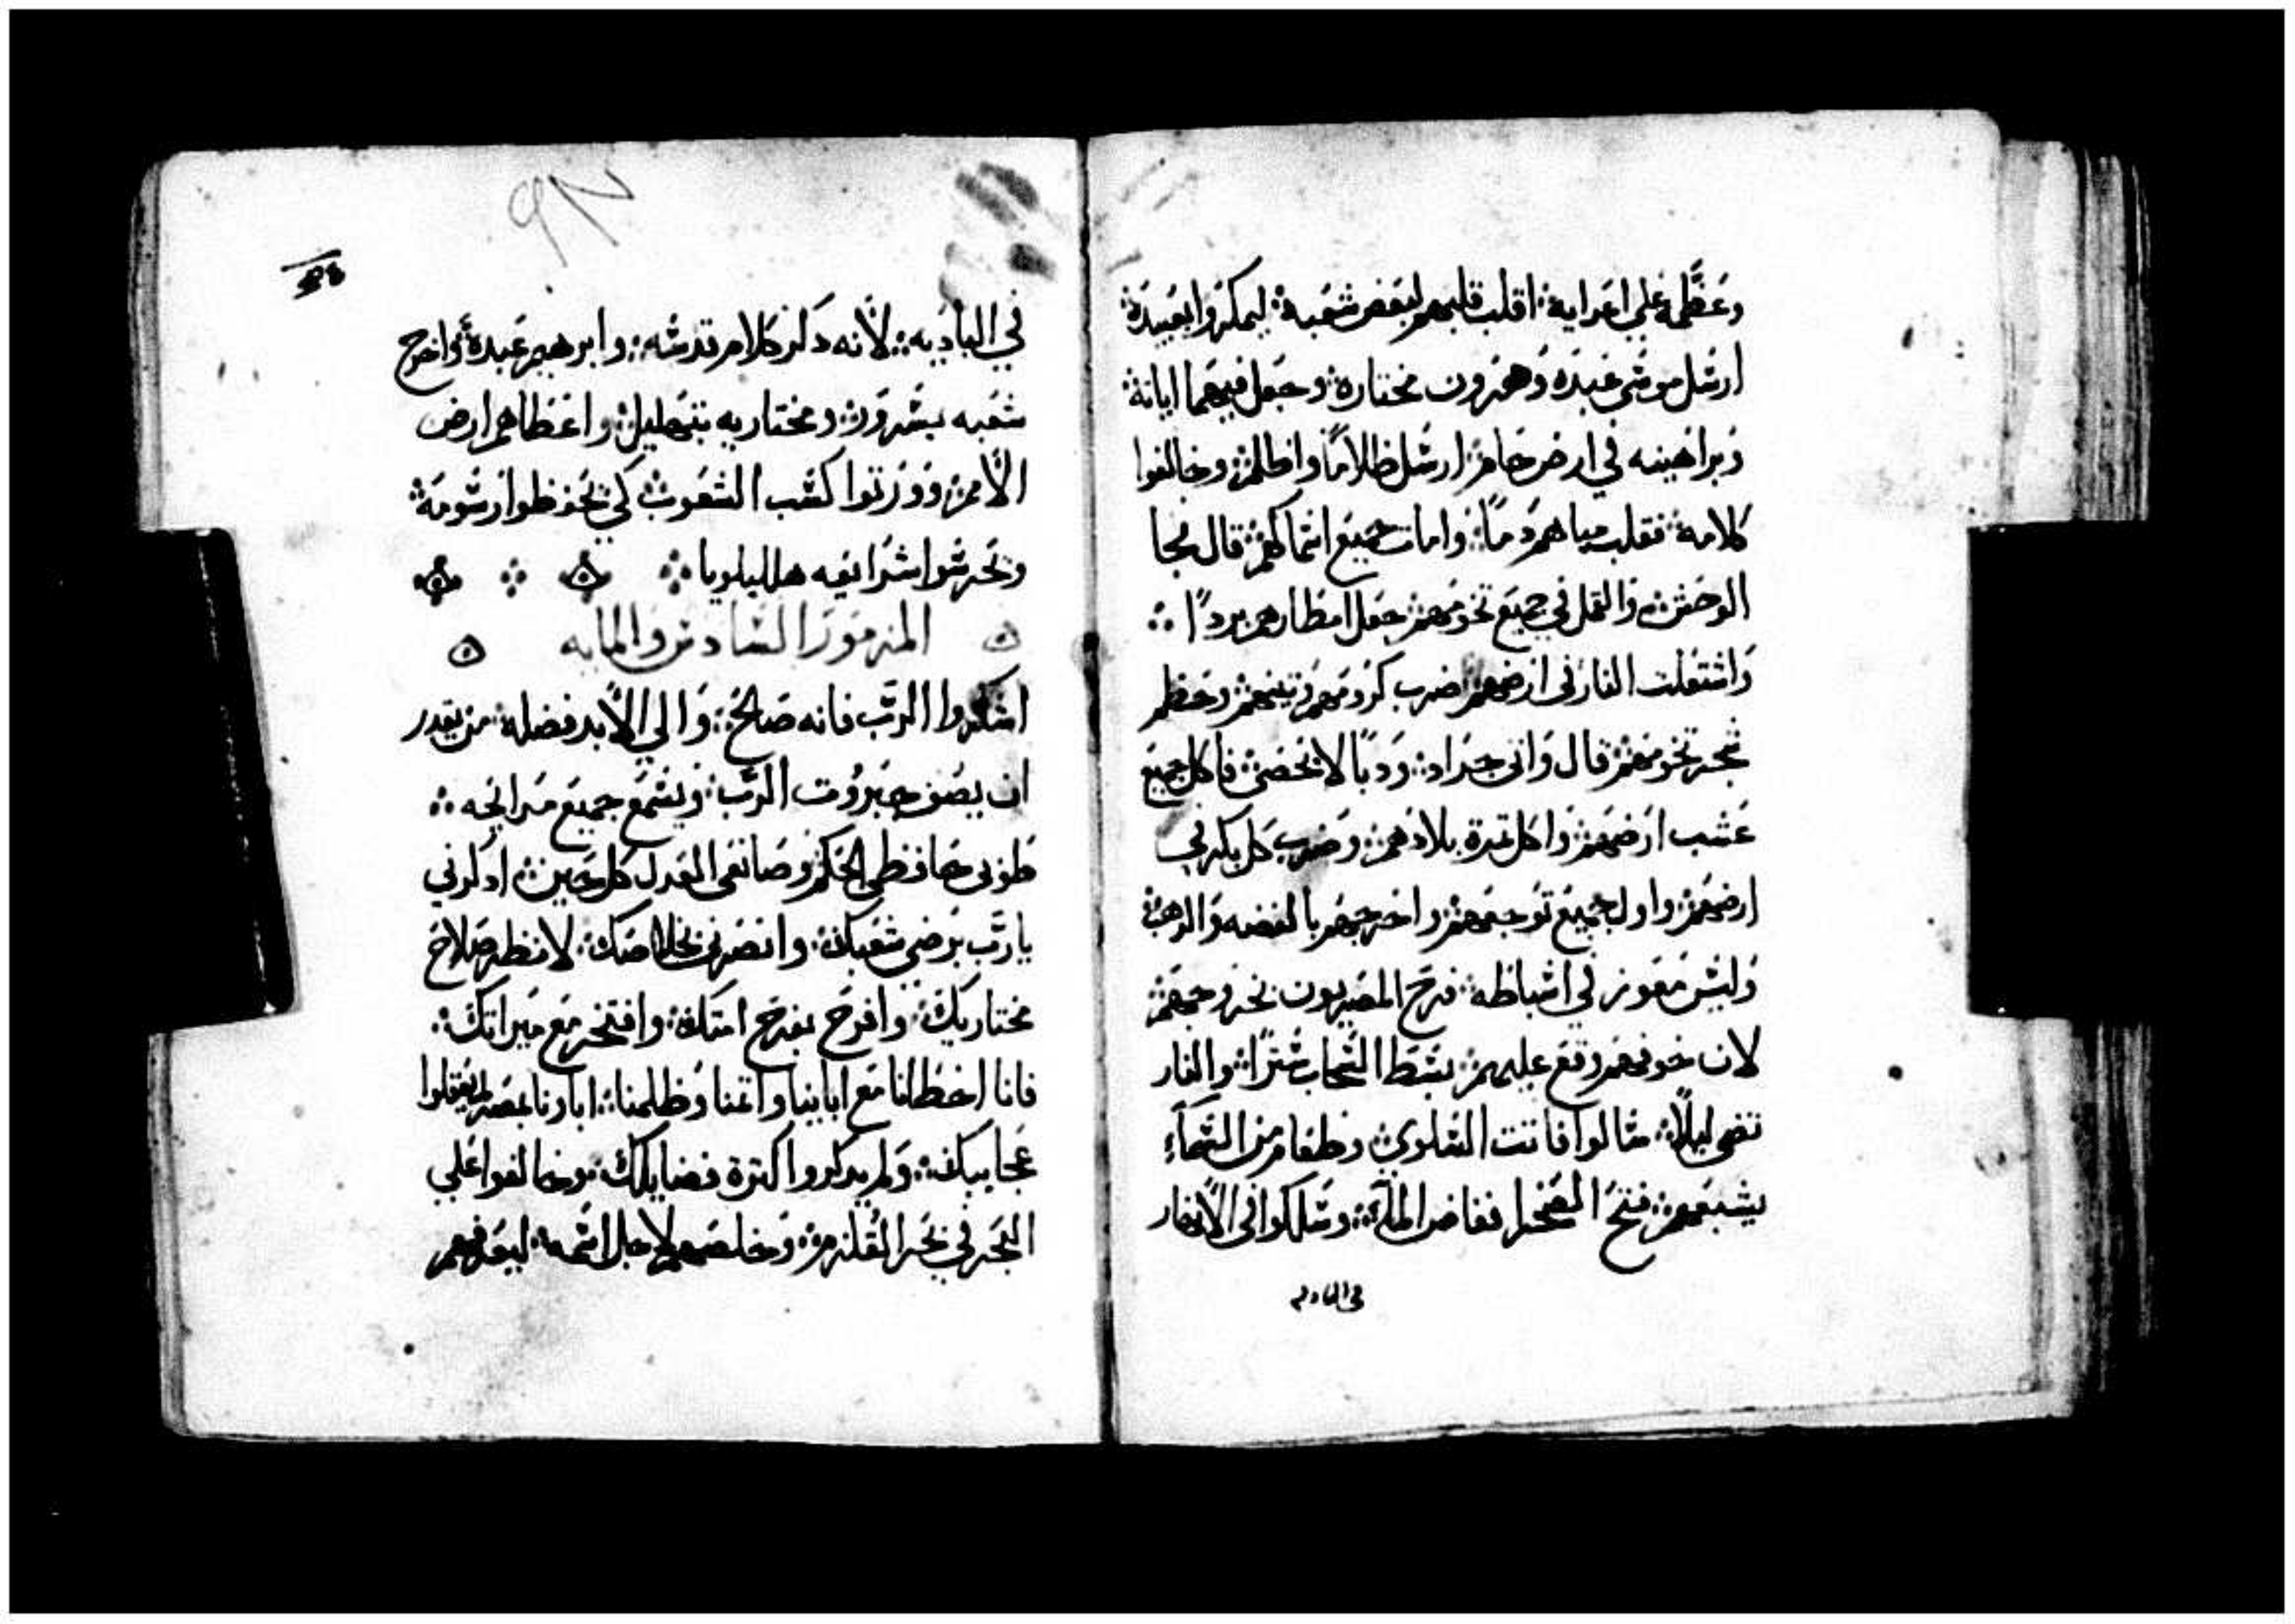 وعَظَّمه علي اعدايه ܀ اقلب قلبهم لبغض شعبه ܀ ليمكروا بعبيده ܀
ارسل موسي عبده وهرون مختاره ܀ وجعل فيهما اياته ܀
وبراهينه في ارض حام ܀ ارسل ظلامًا واظلم ܀ وخالفوا
كلامه ܀ فقلب مياههم دمًا ܀ وامات جميع اسماكهم ܀ قال فجا
الوحش ܀ والقمل في جميع تخومهم ܀ جعل امطارهم بردًا ܀
واشتعلت النار في ارضهم ܀ ضرب كرومهم وتينهم ܀ وحطم
شجر تخومهم ܀ قال واتي جراد ܀ ودبًا لا يحصي ܀ فاكل جميع
عشب ارضهم ܀ واكل ثمرة بلادهم ܀ وضرب كل بكر في
ارضهم ܀ واول جميع توجعهم ܀ واخرجهم بالفضه والدهب ܀
وليس معوز في اسباطه ܀ فرح المصريون بخروجهم ܀
لان خوفهم وقع عليهم ܀ بسط السحاب سترًا ܀ والنار
تضي ليلًا ܀ سالوا فاتت السلوي ܀ وطعام من السمآء
يشبعهم ܀ فتح الصخرا ففاض المآء ܀ وسلكوا في الانهار
في الباديه
في الباديه ܀ لانه دكر كلام قدسه ܀ وابرهيم عبده ܀ واخرج
شعبه بسرور ܀ ومختاريه بتهليل ܀ واعطاهم ارض
الامم ܀ وورتوا كسب الشعوب ܀ كي يحفظوا رسومه ܀
ويحرسوا شرايعه هلليلويا ܀
المزمور السادس والمايه
اشكروا الرَّب فانه صالح ܀ والي الابد فضله ܀ من يقدر
ان يصف جبروت الرَّب ܀ ويسمع جميع مدايحه ܀
طوبي حافظي الحكم وصانعي العدل كل حين ܀ ادكرني
يا رَّب برضي شعبك ܀ وانصرني بخلاصك ܀ لانظر صلاح
مختاريك ܀ وافرح بفرح امتك ܀ وافتخر مع ميراتك ܀
فانا اخطانا مع ابايينا واثمنا وظلمنا ܀ اباونا بمصر لم يعقلوا
عجايبك ܀ ولم يدكروا كترة فضايلك ܀ وخالفوا علي
البحر في بحر القلزم ܀ وخلصهم لاجل اسمه ܀ ليعرفهم